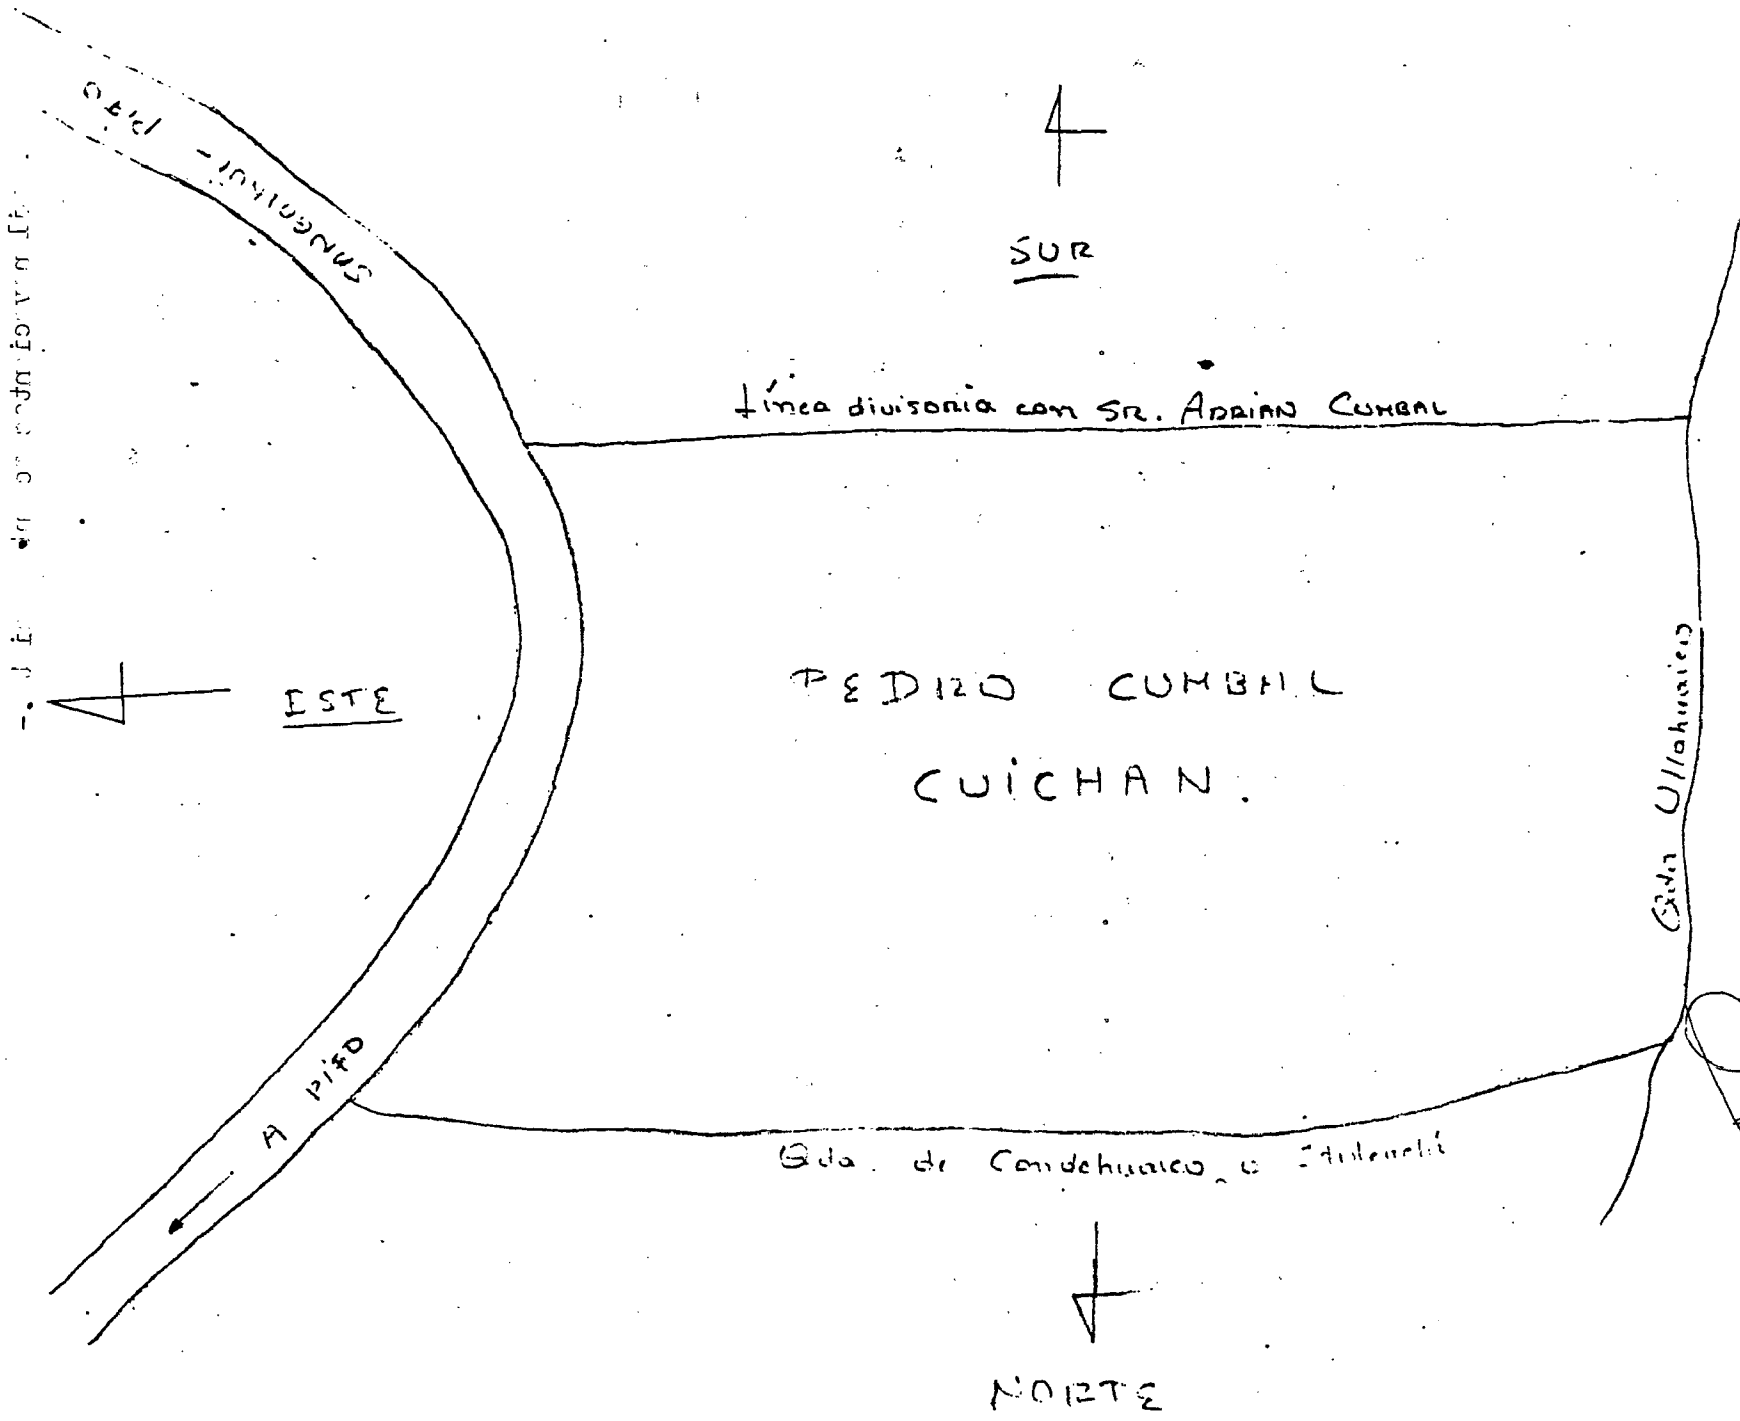 SANGOLHUÍ - PifO
SUR
Línea divisoria con SR. ADRIAN CUMBAL
ESTE
PEDRO CUMBAL
CUiCHAN.
Qda Ullahuaico
A PifO
Qda. de Condehuaico o
NORTE